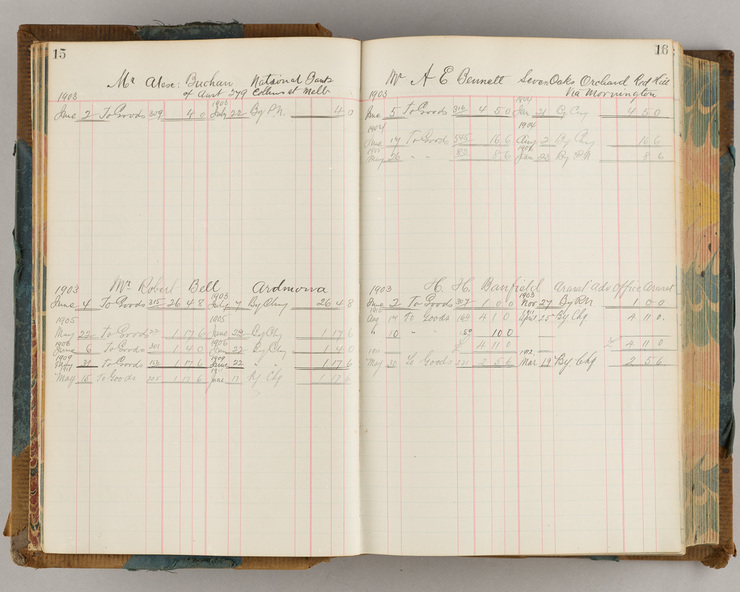 15
Mr Alex: Buchan National Bank
of Aust 279 Collins st Melb
1903 1903
June 2 To Goods 4 0 July 22 By P.N. 4 0
1903 Mr Robert Bell Ardmona
1903
June 4 To Goods 315 26 4 8 July 7 By Chq 26 4 8
1905 1905
May 22 To Goods 1 17 6 June 29 By Chq 1 17 6
1906 1906
June 6 To Goods 1 4 0 22 By Chq 1 4 0
1909 1909
21 To Goods 1 17 6 June 22 " " 1 17 6
1911
May 15 To Goods 1 17 6 June 17 By Chq 1 17 6
16
Mr A E Bennett Seven Oaks Orchard Red Hill
Via Mornington
1903 1904
June 5 To Goods 316 4 5 0 Jan 21 By Chq 4 5 0
1904 1904
June 17 To Goods 16 6 Aug 2 By Chq 16 6
May 26 " " 8 6 Jan 23 By P.N 8 6
1903 H. H. Banfield Ararat Adv Office Ararat
1903
June 2 To Goods 317 1 0 0 Nov 27 By P.N 1 0 0
1910
Aug 17 To Goods 169 4 1 0 April 25 By Chq 4 11 0
" 10 " 10 0
4 11 0 4 11 0
May 30 To Goods 2 5 6 Mar 19 By Chq 2 5 6